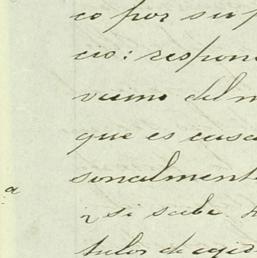 co por su p
cio: respon
vecino del m
que es casa
sonalment
y si sabe
tulos de egid
a